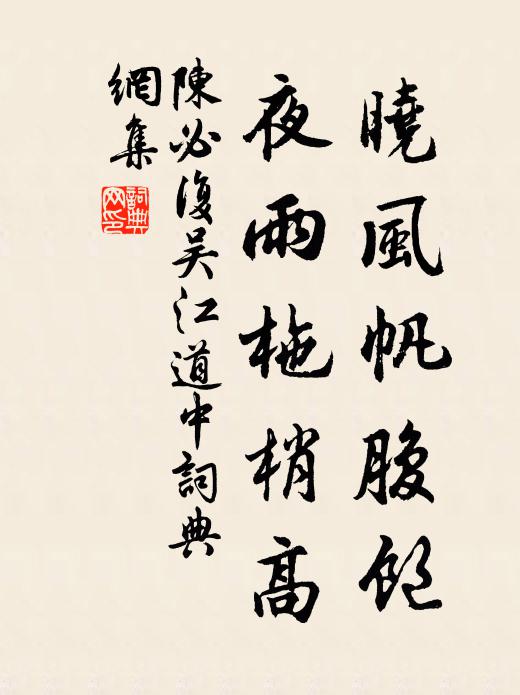 曉風帆腹飽
夜雨柂梢高
陳必復吴江道中詞典
網集
詞典網印